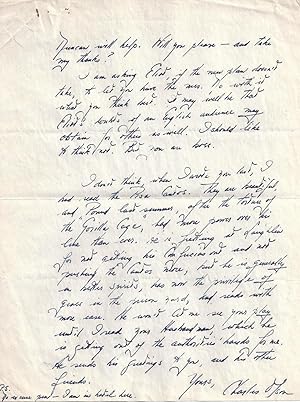 Duncan will help. Will you please — and take
my thanks?
I am asking Eliot, if the new plan doesn't
take, to let you have the mss. Do with it
what you think best. It may well be that
Eliot's doubts of an English audience may
obtain for others as well. I should like
to think not. But you are boss.
I don't think, when I wrote you last, I
had read the Pisa Cantos. They are beautiful,
and Pound last summer, after the torture of
the Gorilla Cage, had more power over his
line than ever. He is
for not getting his Confucius out and not
pushing the Cantos more, but he is generally
in better spirits, has now the privilege of
grass in the prison yard, and reads with
more ease. He won't let me see your play
until I read your Husbandman, which he
is getting out of the authorities' hands for me.
He sends his greetings to you, and his other
friends.
Yours,
Charles Olson
P.S.
I am in hotel here.